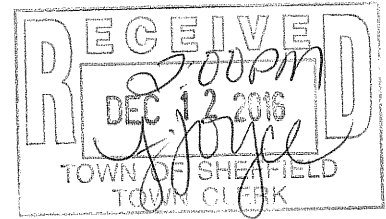 RECEIVED
2:00PM
DEC 12 2016
J. Joyce
TOWN OF SHEFFIELD
TOWN CLERK